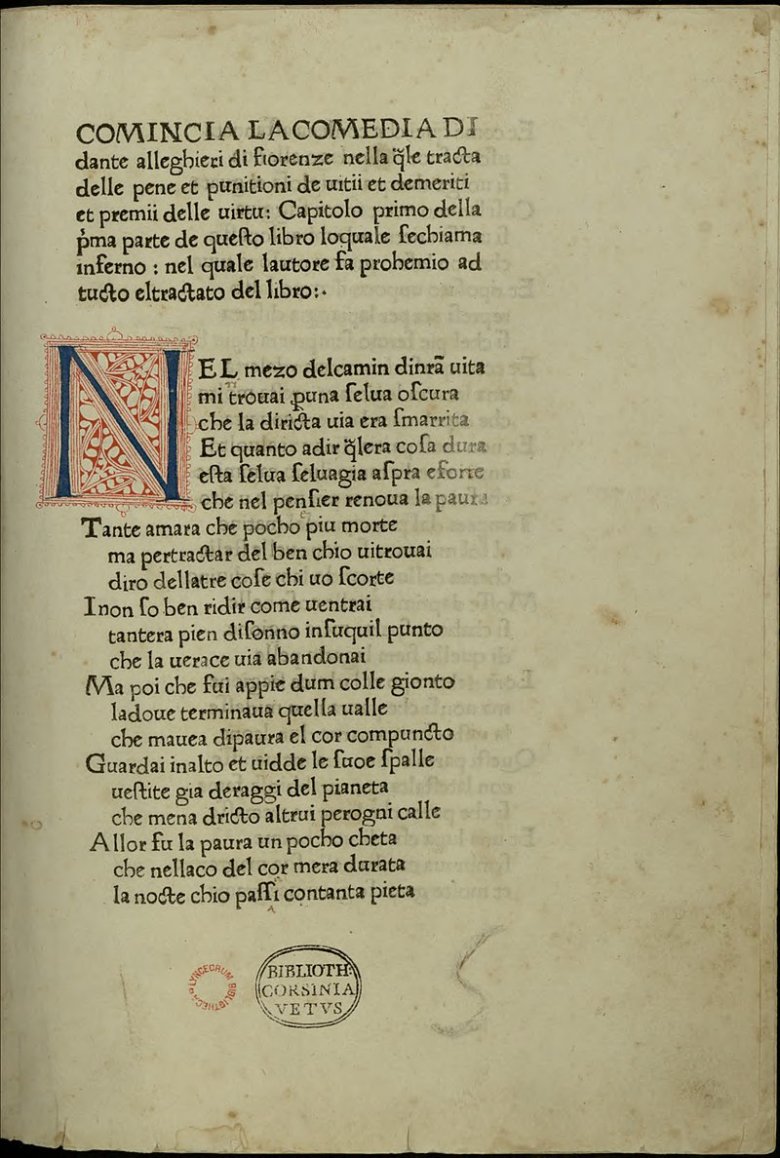 COMINCIA LACOMEDIA DI
dante alleghieri di fiorenze nella q̃le tracta
delle pene et punitioni de uitii et demeriti
et premii delle uirtu: Capitolo primo della
p̱̍ma parte de queſto libro loquale ſechiama
inferno : nel quale lautore fa probemio ad
tucto eltractato del libro:·
NEL mezo delcamin dinrã uita
mi trouai ꝑuna ſelua oſcura
che la diricta uia era ſmarrita
Et quanto adir q̃lera coſa dura
eſta ſelua ſeluagia aſpra eforte
che nel penſier renoua la paura
Tante amara che pocho piu morte
ma pertractar del ben chio uitrouai
diro dellatre coſe chi uo ſcorte
I non ſo ben ridir come uentrai
tantera pien diſonno inſuquil punto
che la uerace uia abandonai
Ma poi che fui appie dum colle gionto
ladoue terminaua quella ualle
che mauea dipaura el cor compuncto
Guardai inalto et uidde le ſuoe ſpalle
ueſtite gia deraggi del pianeta
che mena dricto altrui perogni calle
Allor fu la paura un pocho cheta
che nellaco del cor mera durata
la nocte chio paſſi contanta pieta
LYNCEORUM BIBLIOTHEC
BIBLIOTH:
CORSINIA
VETVS